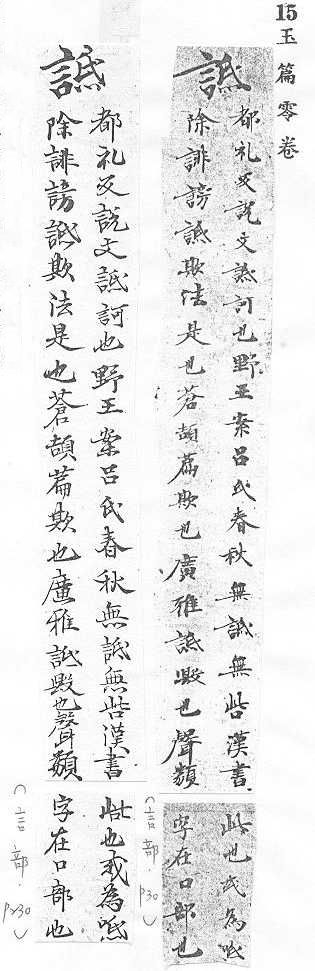 15玉篇零卷
詆
都礼反說文詆訶也野王案呂氏春秋無詆無呰漢書
除誹謗詆欺法是也蒼頡篇欺也廣雅詆毀也聲類
呰也或為呧
字在口部也
(言部.
詆
都礼反說文詆訶也野王案呂氏春秋無詆無呰漢書
除誹謗詆欺法是也蒼頡篇欺也廣雅詆毀也聲類
呰也或為呧
字在口部也
(言部.